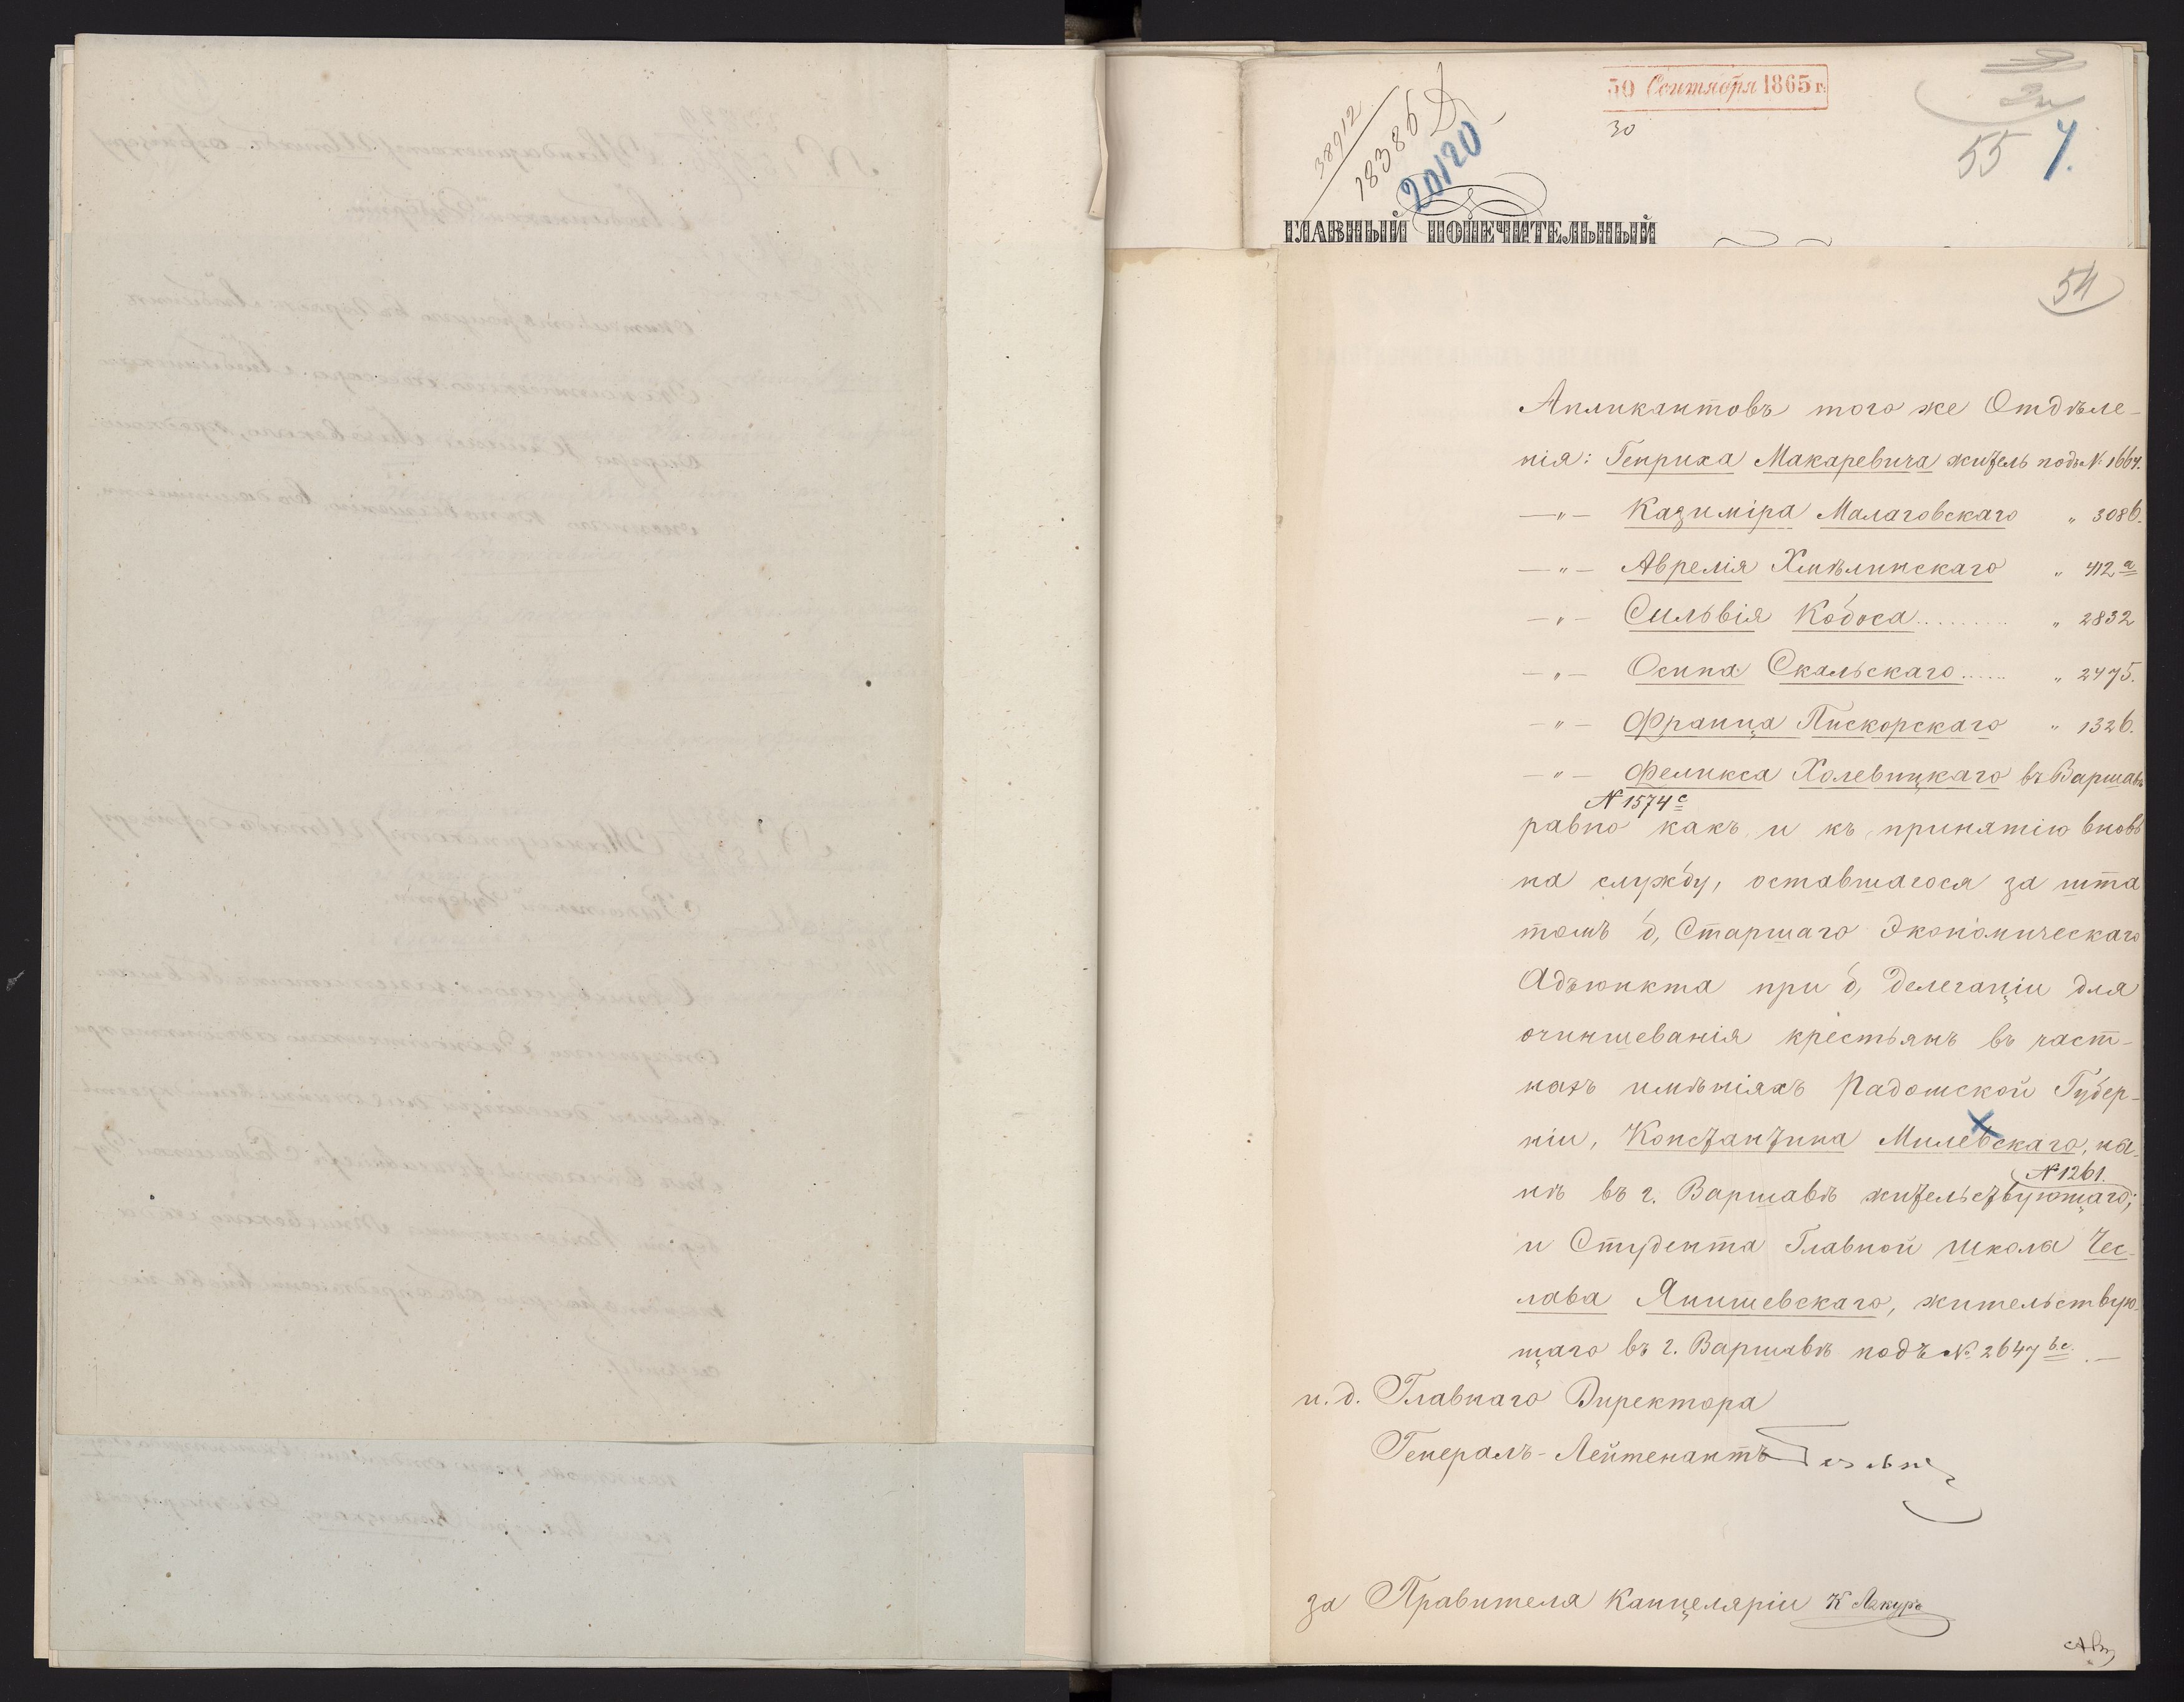 30 Сентября 1865 г.
30
38912
18386
20120
55 7.
ГЛАВНЫЙ ПОПЕЧИТЕЛЬНЫЙ
54
Апликантовъ того же Отдѣле-
нія: Генриха Макаревича житель подъ № 1667.
—"— Казиміра Малаговскаго " 3086.
—"— Аврелія Хмѣлинскаго " 412 а
—"— Сильвія Кобоса......... " 2832
—"— Осипа Скальскаго...... " 2475.
—"— Франца Пискорскаго " 1326.
—"— Феликса Холевицкаго въ Варшавѣ
№ 1574 с
равно какъ и къ принятію вновь
на службу, оставшагося за шта
томъ б, Старшаго Экономическаго
Адъюнкта при б, Делегаціи для
очиншеванія крестьянъ въ част-
ныхъ имѣніяхъ Радомской Губер-
ніи, Константина Милевскаго, ны-
№ 1261.
нѣ въ г. Варшавѣ жительствующаго;
и Студента Главной школы Чес-
лава Янишевскаго, жительствую-
щаго въ г. Варшавѣ подъ № 2647 b.c. —
и. д. Главнаго Директора
Генералъ-Лейтенантъ
за Правителя Канцеляріи К